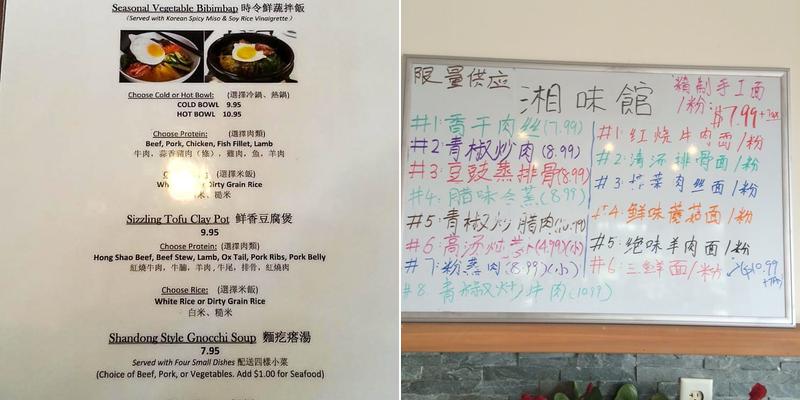 Seasonal Vegetable Bibimbap 時令鮮蔬拌飯
(Served with Korean Spicy Miso & Soy Rice Vinaigrette)
Choose Cold or Hot Bowl: (選擇冷鍋、熱鍋)
COLD BOWL 9.95
HOT BOWL 10.95
Choose Protein: (選擇肉類)
Beef, Pork, Chicken, Fish Fillet, Lamb
牛肉，蒜香豬肉（條），雞肉，魚，羊肉
(選擇米飯)
Dirty Grain Rice
糙米
Sizzling Tofu Clay Pot 鮮香豆腐煲
9.95
Choose Protein: (選擇肉類)
Hong Shao Beef, Beef Stew, Lamb, Ox Tail, Pork Ribs, Pork Belly
紅燒牛肉，牛腩，羊肉，牛尾，排骨，紅燒肉
Choose Rice: (選擇米飯)
White Rice or Dirty Grain Rice
白米、糙米
Shandong Style Gnocchi Soup 麵疙瘩湯
7.95
Served with Four Small Dishes 配送四樣小菜
(Choice of Beef, Pork, or Vegetables. Add $1.00 for Seafood)
限量供应
湘味館
精制手工面
/粉: $7.99+Tax
#1: 香干肉丝(7.99)
#2: 青椒炒肉(8.99)
#3: 豆豉蒸排骨(8.99)
#4: 腊味合蒸(8.99)
#5: 青椒炒腊肉
#6: 高汤 (4.99)(小)
#7: 粉蒸肉(8.99)(小)
#8. 青椒炒牛肉(10.99)
#1: 红烧牛肉面/粉
#2: 清汤排骨面/粉
#3: 榨菜肉丝面/粉
#4: 鲜味蘑菇面/粉
#5: 绝味羊肉面/粉
#6: 三鲜面/粉
$10.99